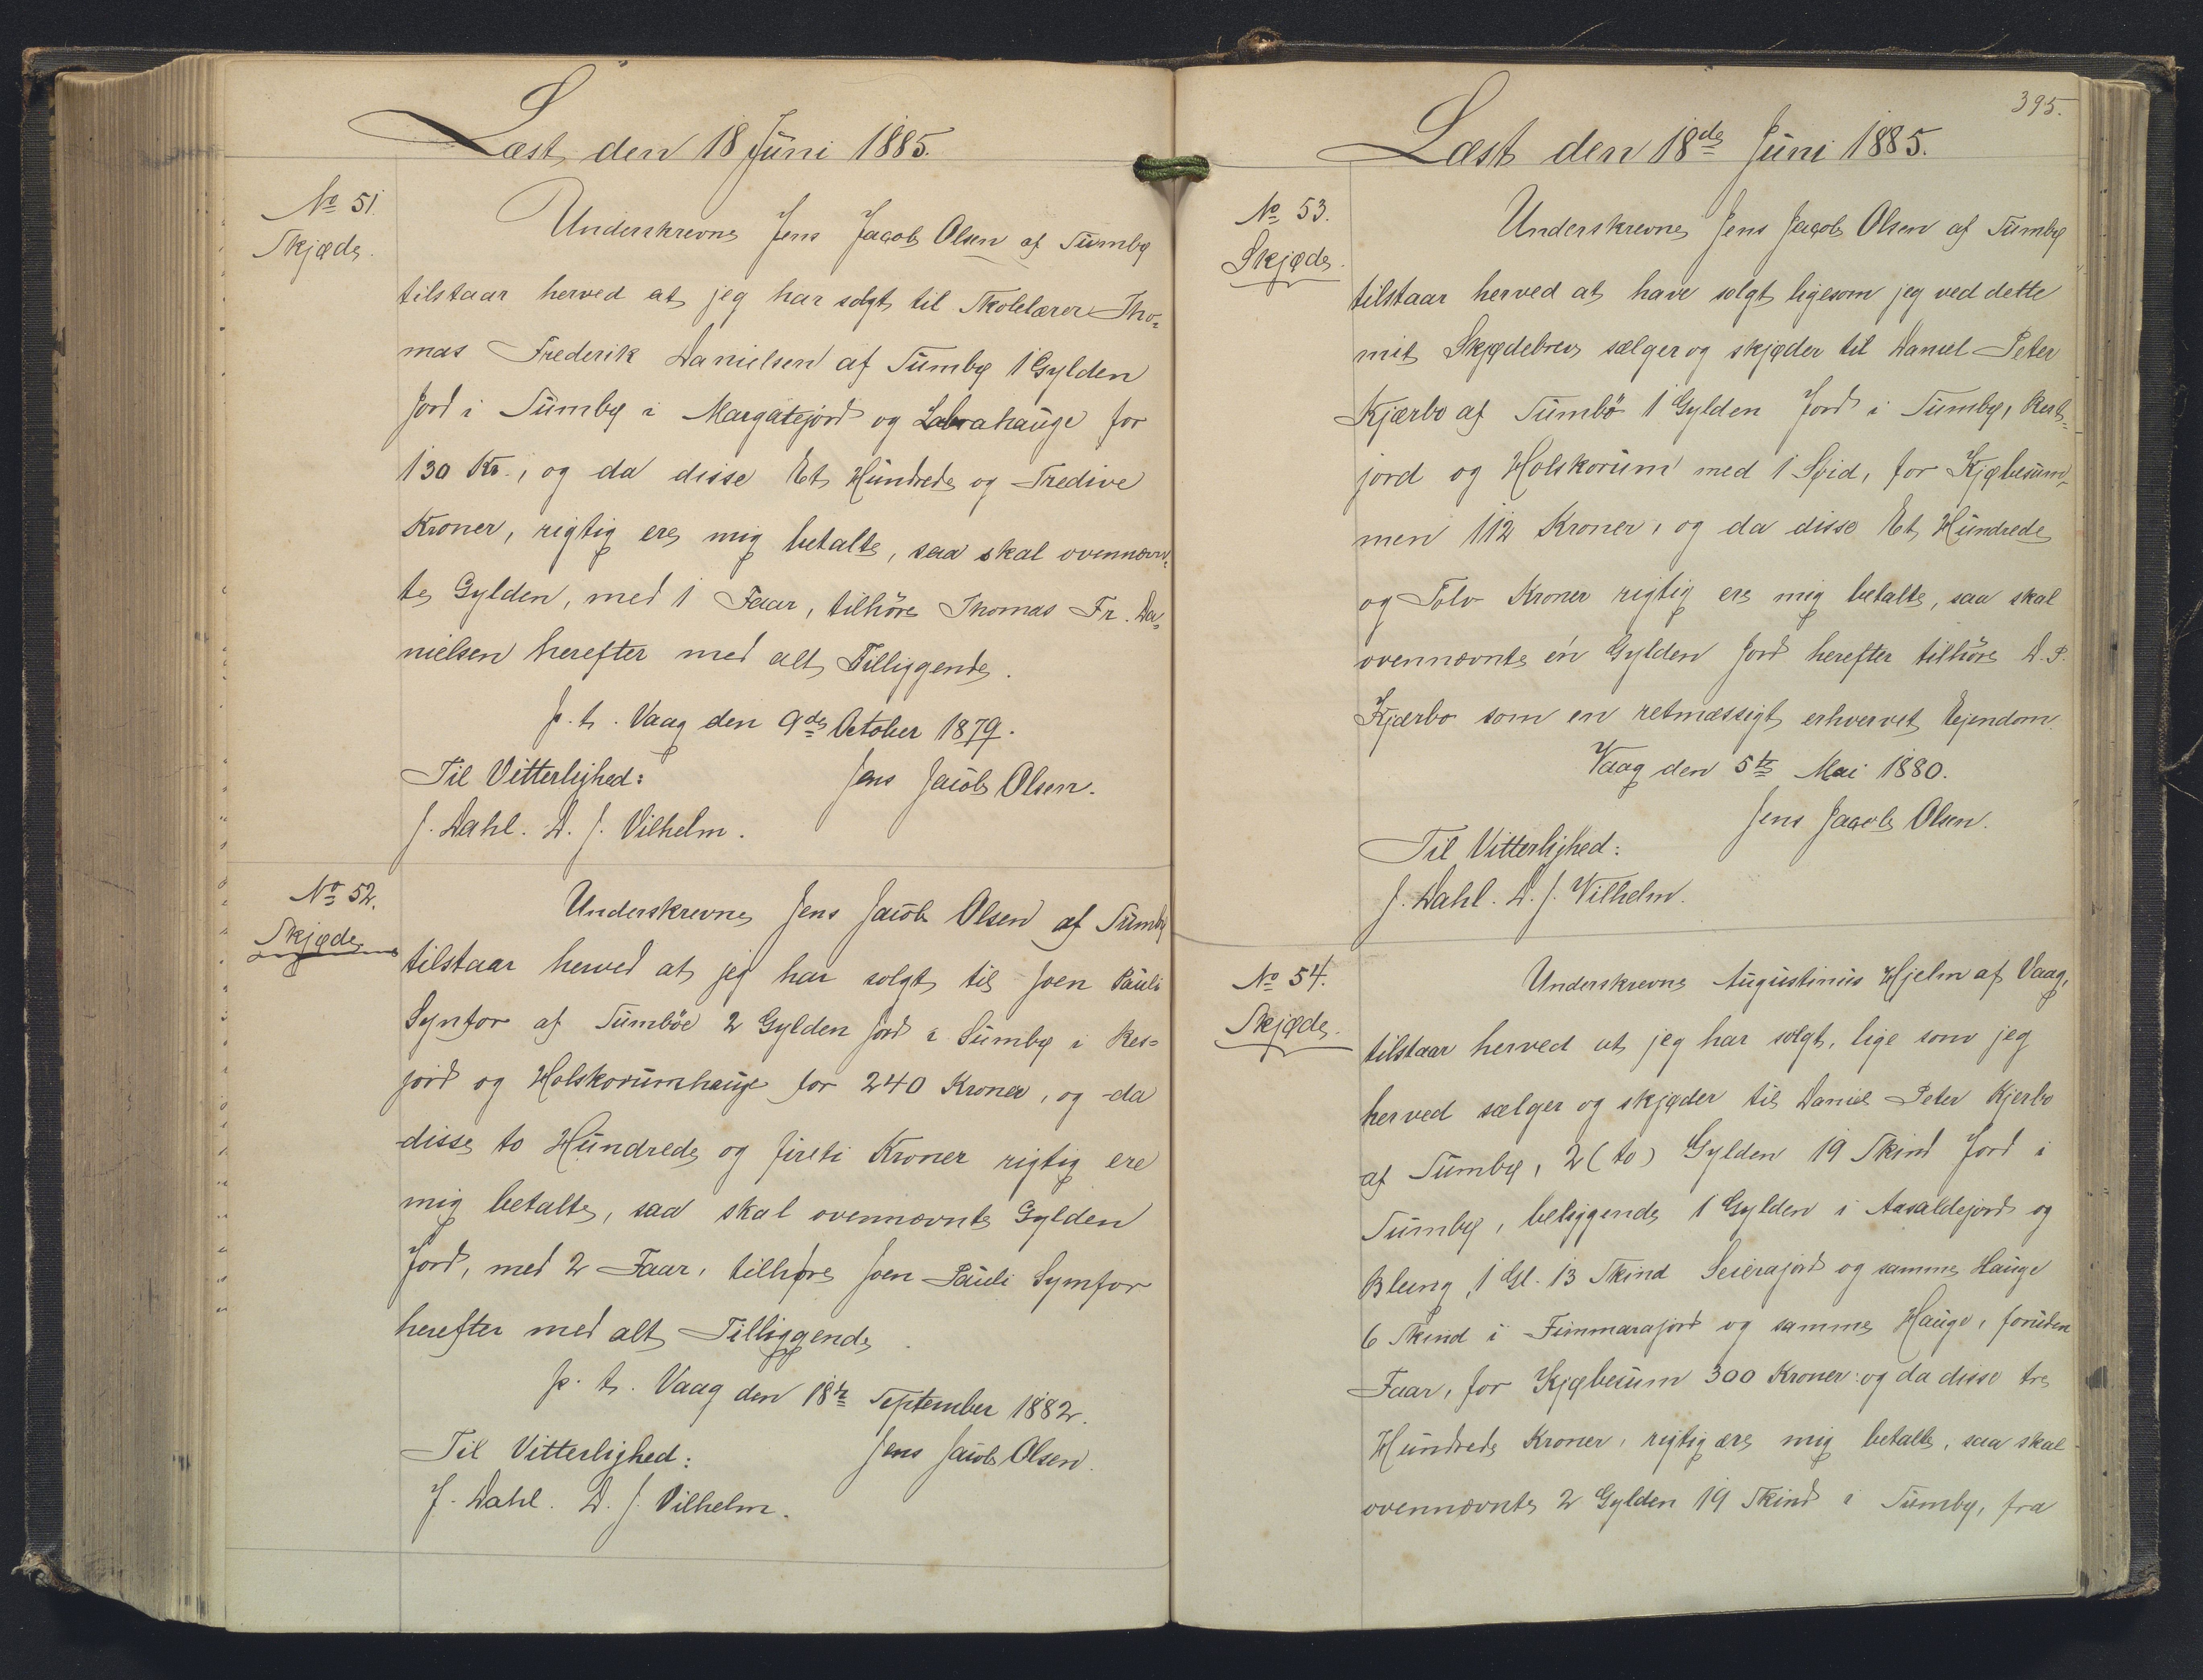 Læst den 18 Juni 1885.
No 51.
Skjøde.
Underskrevne Jens Jacob Olsen af Sumbø
tilstaar herved at jeg har solgt til Skolelærer Tho-
mas Frederik Danielsen af Sumbø 1 Gylden
Jord i Sumbø i Margatejord og Labrahauge for
130 Kr., og da disse Et Hundrede og Tredive
Kroner, rigtig ere mig betalte, saa skal ovennævn-
te Gylden, med 1 Faar, tilhöre Thomas Fr. Da-
nielsen herefter med alt Tilliggende.
p. t. Vaag den 9de October 1879.
Til Vitterlighed: Jens Jacob Olsen.
J. Dahl. D. J. Vilhelm.
No 52.
Skjøde.
Underskrevne Jens Jacob Olsen af Sumbø
tilstaar herved at jeg har solgt til Joen Pauli
Synfor af Sumböe 2 Gylden Jord i Sumbø i Res-
jord og Holskorumhauge for 240 Kroner, og da
disse to Hundrede og firti Kroner rigtig ere
mig betalte, saa skal ovennævnte Gylden
Jord, med 2 Faar, tilhøre Joen Pauli Symfor
herefter med alt Tilliggende.
p. t. Vaag den 18te September 1882.
Til Vitterlighed: Jens Jacob Olsen.
J. Dahl. D. J. Vilhelm.
395.
Læst den 18de Juni 1885.
No 53.
Skjøde.
Underskrevne Jens Jacob Olsen af Sumbø
tilstaar herved at have solgt ligesom jeg ved dette
mit Skjødebrev sælger og skjøder til Daniel Peter
Kjærbo af Sumbö 1 Gylden Jord i Sumbø, Rest-
jord og Holskorum med 1 Spid, for Kjøbesum-
men 112 Kroner, og da disse Et Hundrede
og Tolv Kroner rigtig ere mig betalte, saa skal
ovennævnte én Gylden Jord herefter tilhöre D. P.
Kjærbo som en retmæssigt erhvervet Ejendom.
Vaag den 5te Mai 1880.
Jens Jacob Olsen.
Til Vitterlighed:
J. Dahl. D. J. Vilhelm.
No 54.
Skjøde.
Underskrevne Augustinus Hjelm af Vaag,
tilstaar herved at jeg har solgt, lige som jeg
herved sælger og skjøder til Daniel Peter Kjerbo
af Sumbø, 2 (to) Gylden 19 Skind Jord i
Sumbø, beliggende 1 Gylden i Aasaldejord og
Bleing, 1 Gl. 13 Skind Seierajord og samme Hauge
6 Skind i Fimmarajord og samme Hauge, foruden
Faar, for Kjøbesum 300 Kroner: og da disse tre
Hundrede Kroner, rigtig ere mig betalte, saa skal
ovennævnte 2 Gylden 19 Skind i Sumbø, fra